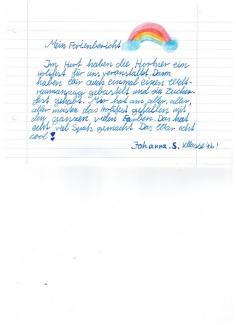 Mein Ferienbericht
Im Hort haben die Hortner ein
Holifest für uns veranstaltet. Dann
haben wir auch einmal einen Welt-
raumanzug gebastelt und ein Zucker-
fest gehabt. Mir hat am aller, aller,
aller meisten das Holifest gefallen mit
den ganzen vielen Farben. Das hat
echt viel Spaß gemacht. Das War echt
cool!
Johanna. S. Klasse 4b!